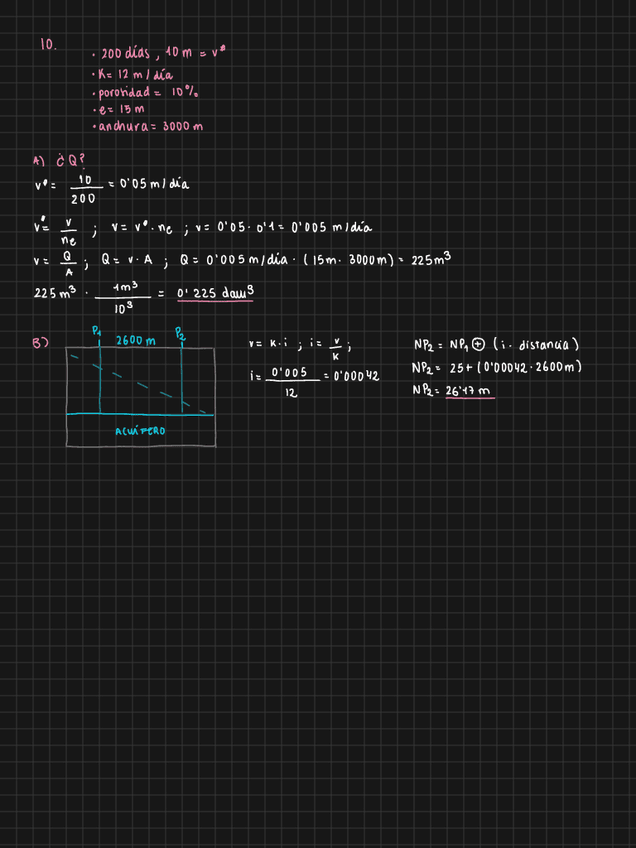 10.
· 200 días, 10 m = v*
· K = 12 m / día
· porosidad = 10%
· e = 15 m
· anchura = 3000 m
A) ¿Q?
v* = 10 / 200 = 0'05 m / día
v* = v / ne ; v = v* · ne ; v = 0'05 · 0'1 = 0'005 m / día
v = Q / A ; Q = v · A ; Q = 0'005 m / día · (15m · 3000 m) = 225 m³
225 m³ · 1m³ / 10³ = 0'225 dam³
B)
P1 2600 m P2
ACUÍFERO
v = K · i ; i = v / K ;
i = 0'005 / 12 = 0'00042
NP2 = NP1 ⊕ (i · distancia)
NP2 = 25 + (0'00042 · 2600 m)
NP2 = 26'17 m